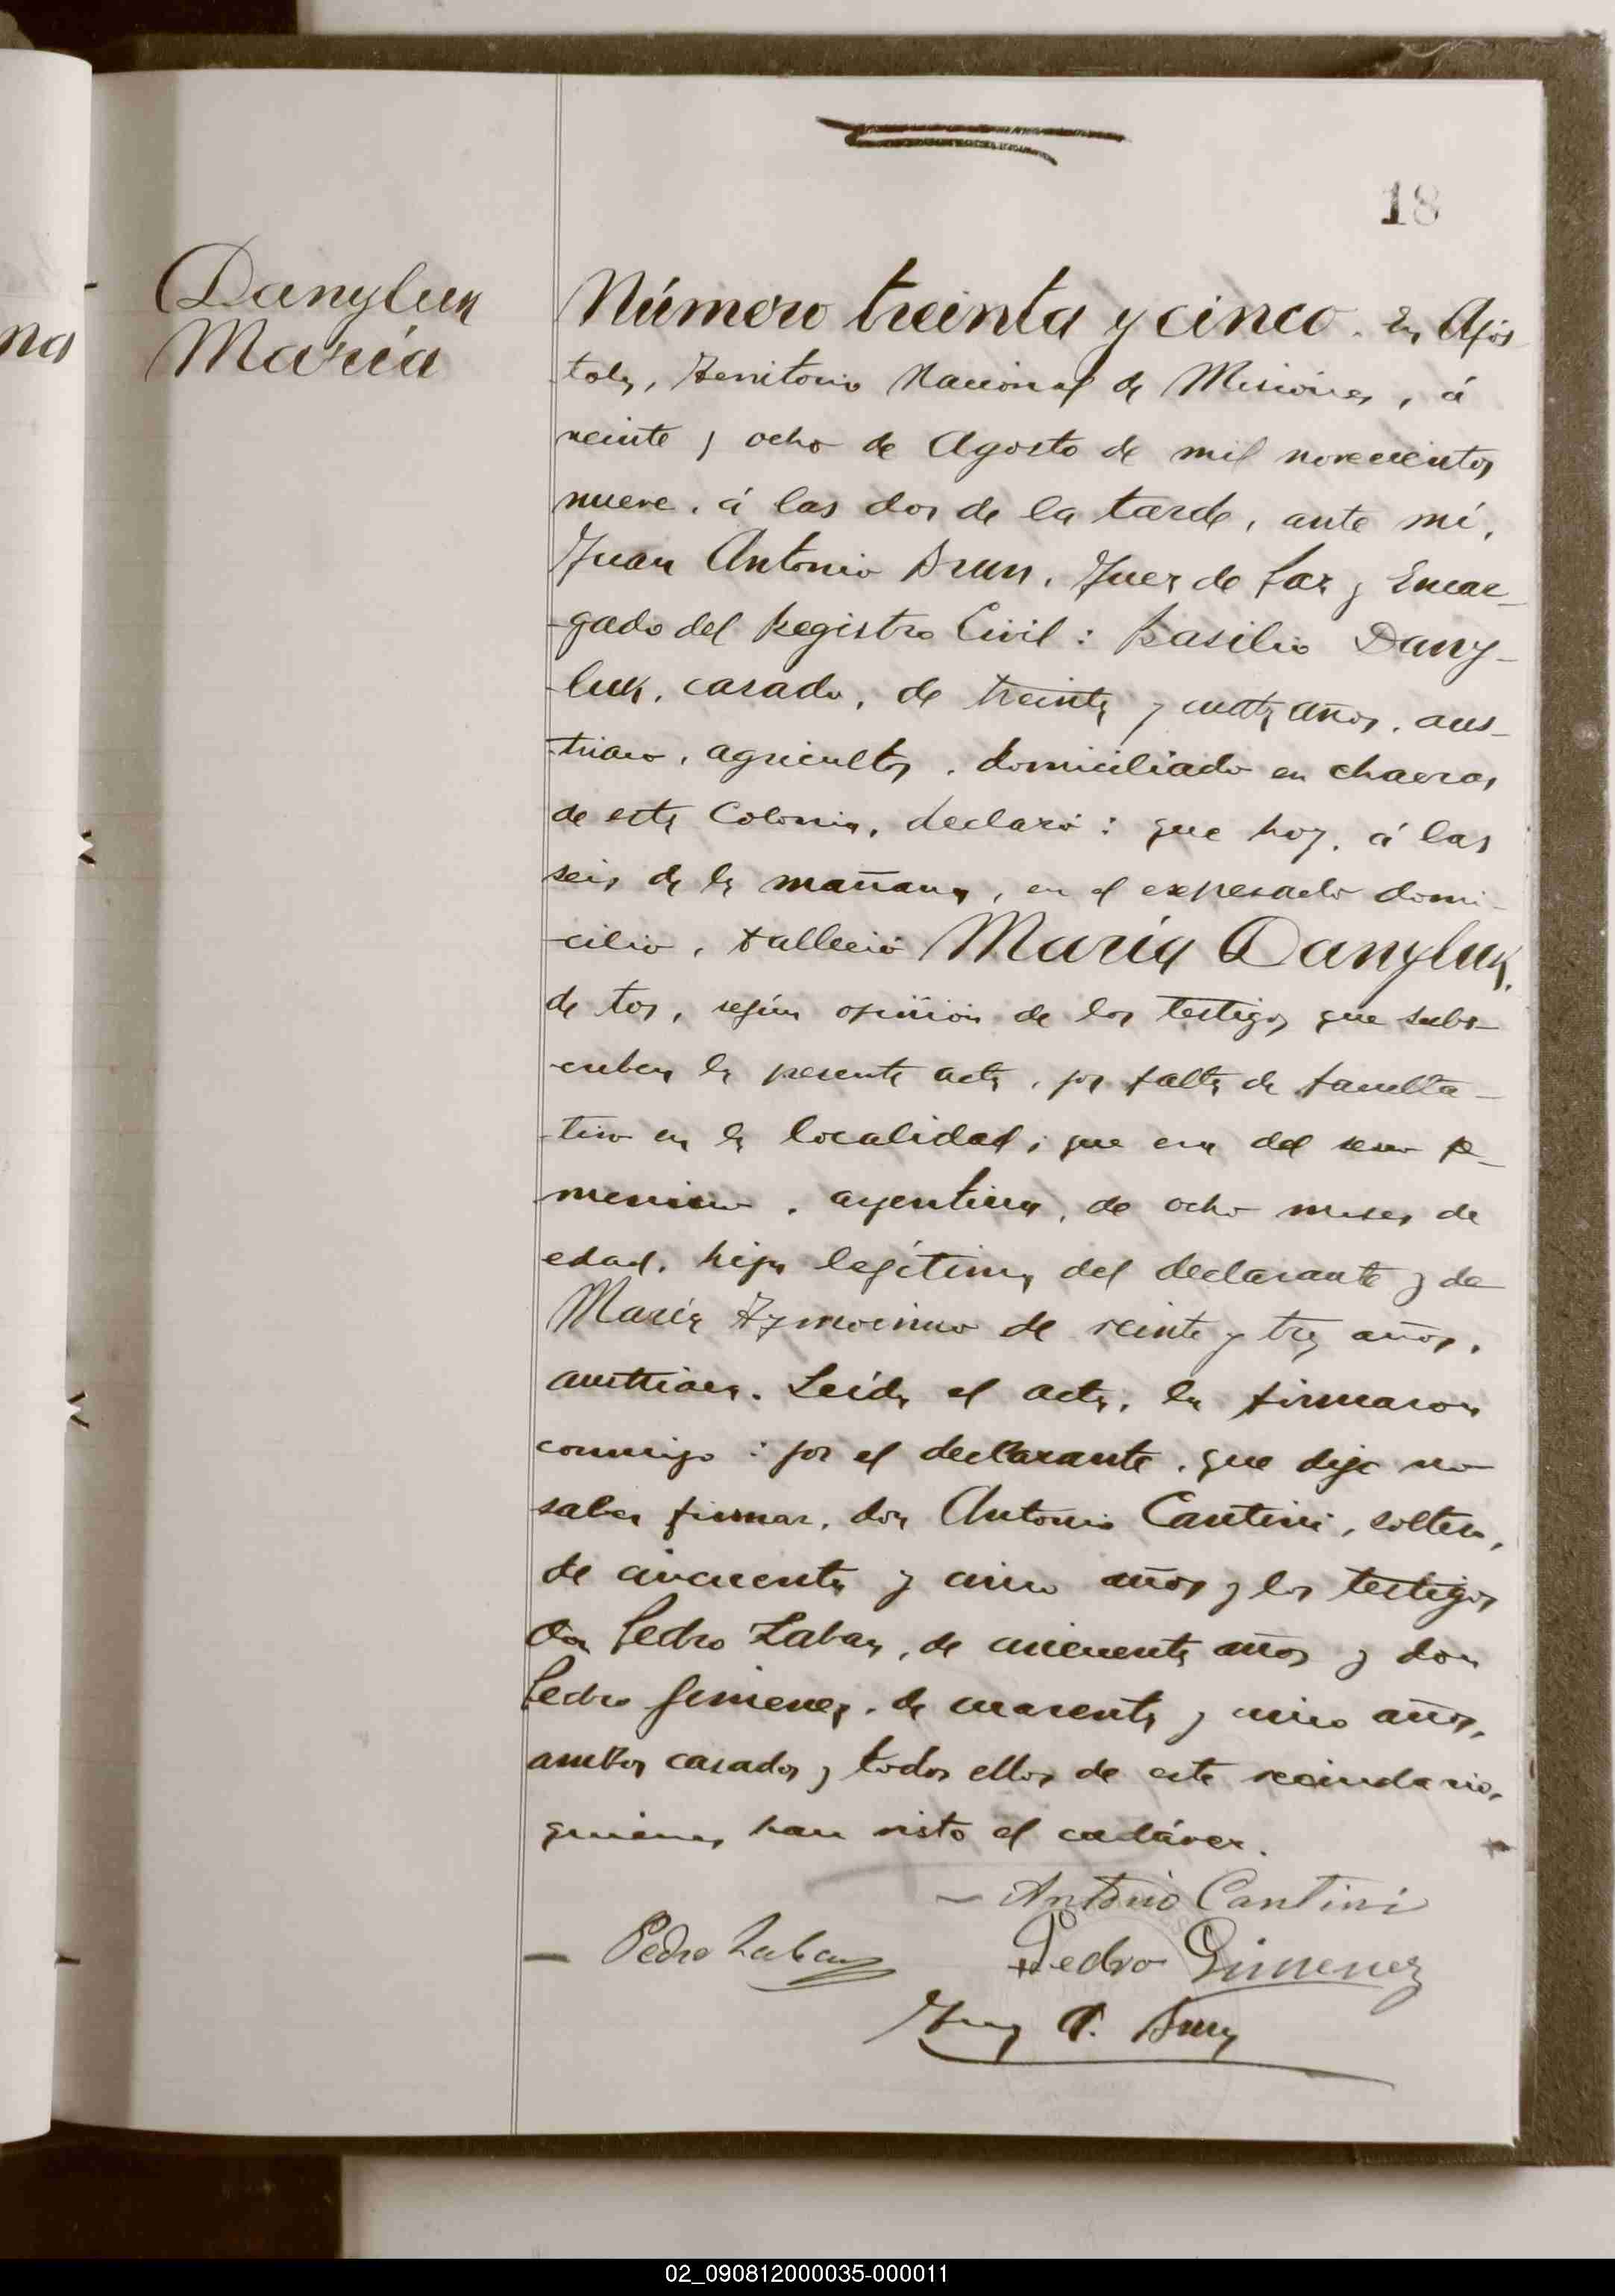 18
Danyluk
María
Número treinta y cinco. En Após
toles, Territorio Nacional de Misiones, á
veinte y ocho de Agosto de mil novecientos
nueve, á las dos de la tarde, ante mí,
Juan Antonio Brun, Juez de Paz y Encar-
gado del Registro Civil: Basilio Dany-
luk, casado, de treinta y cuatro años, aus-
triaco, agricultor, domiciliado en chacras
de esta Colonia, declaró: que hoy, á las
seis de la mañana, en el expresado domi-
cilio, falleció María Danyluk,
de tos, según opinión de los testigos que subs-
criben la presente acta, por falta de faculta-
tivo en la localidad; que era del sexo fe-
menino, argentina, de ocho meses de
edad, hija legítima del declarante y de
María de veinte y tres años,
austriaca. Leída el acta, la firmaron
conmigo: por el declarante, que dijo no
saber firmar, don Antonio Cantini, soltero,
de cincuenta y cinco años y los testigos
don Pedro Labay, de cincuenta años y don
Pedro Gimenez, de cuarenta y cinco años,
ambos casados y todos ellos de este vecindario,
quienes han visto el cadáver.
Antonio Cantini
Pedro Labay Pedro Gimenez
Juan A. Brun
02_090812000035-000011